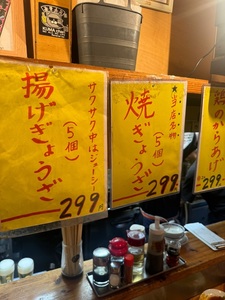 揚げぎょうざ
(5個)
サクサク中はジューシー
299
★当店名物
焼ぎょうざ
(5個)
299
鶏のからあげ
299